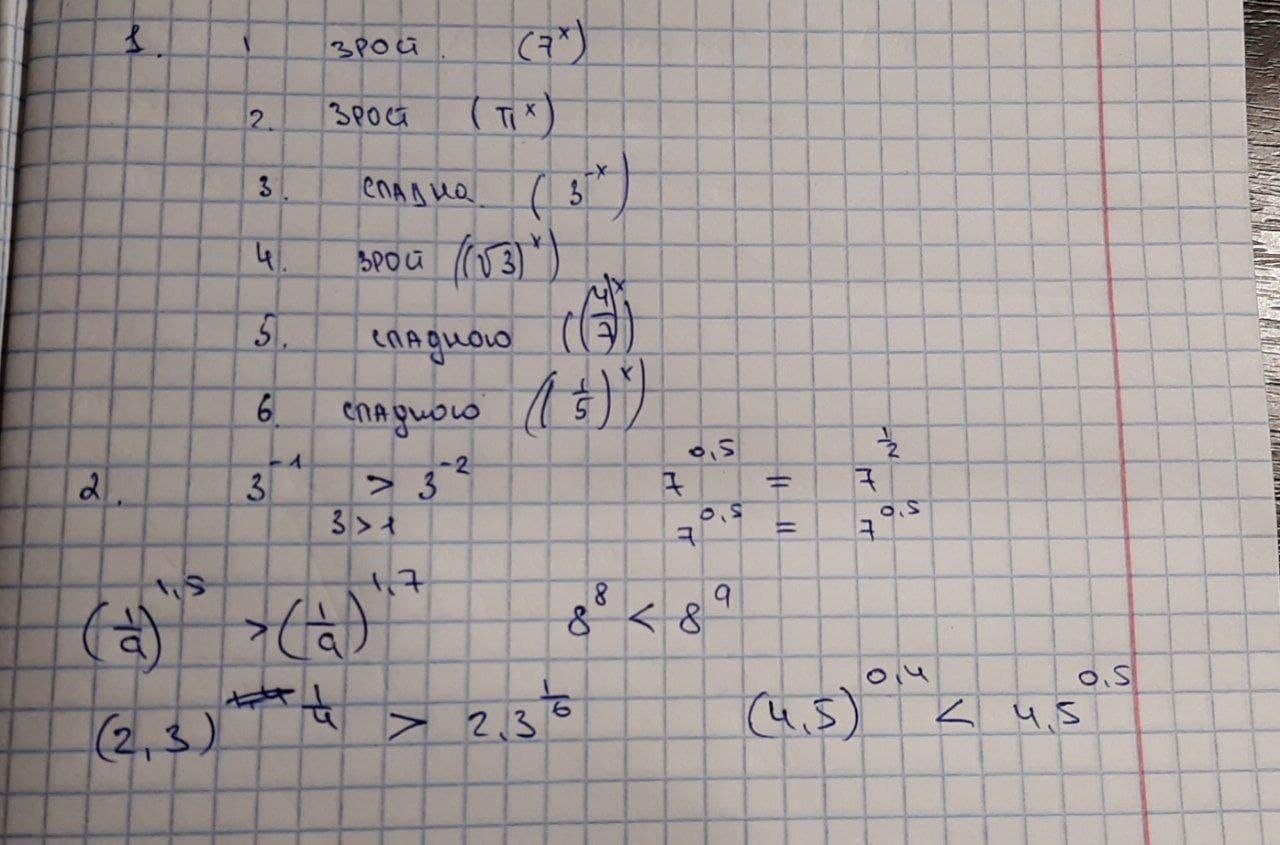 1. 1 зрост. (7^x)
2. зрост (π^x)
3. спадна. (3^-x)
4. зрост ((√3)^x)
5. спадного ((4/7)^x)
6. спадного ((1/5)^x)
2. 3^-1 > 3^-2 7^0,5 = 7^1/2
3 > 1 7^0,5 = 7^0,5
(1/9)^1,5 > (1/9)^1,7 8^8 < 8^9
(2,3)^1/4 > 2,3^1/6 (4,5)^0,4 < 4,5^0,5